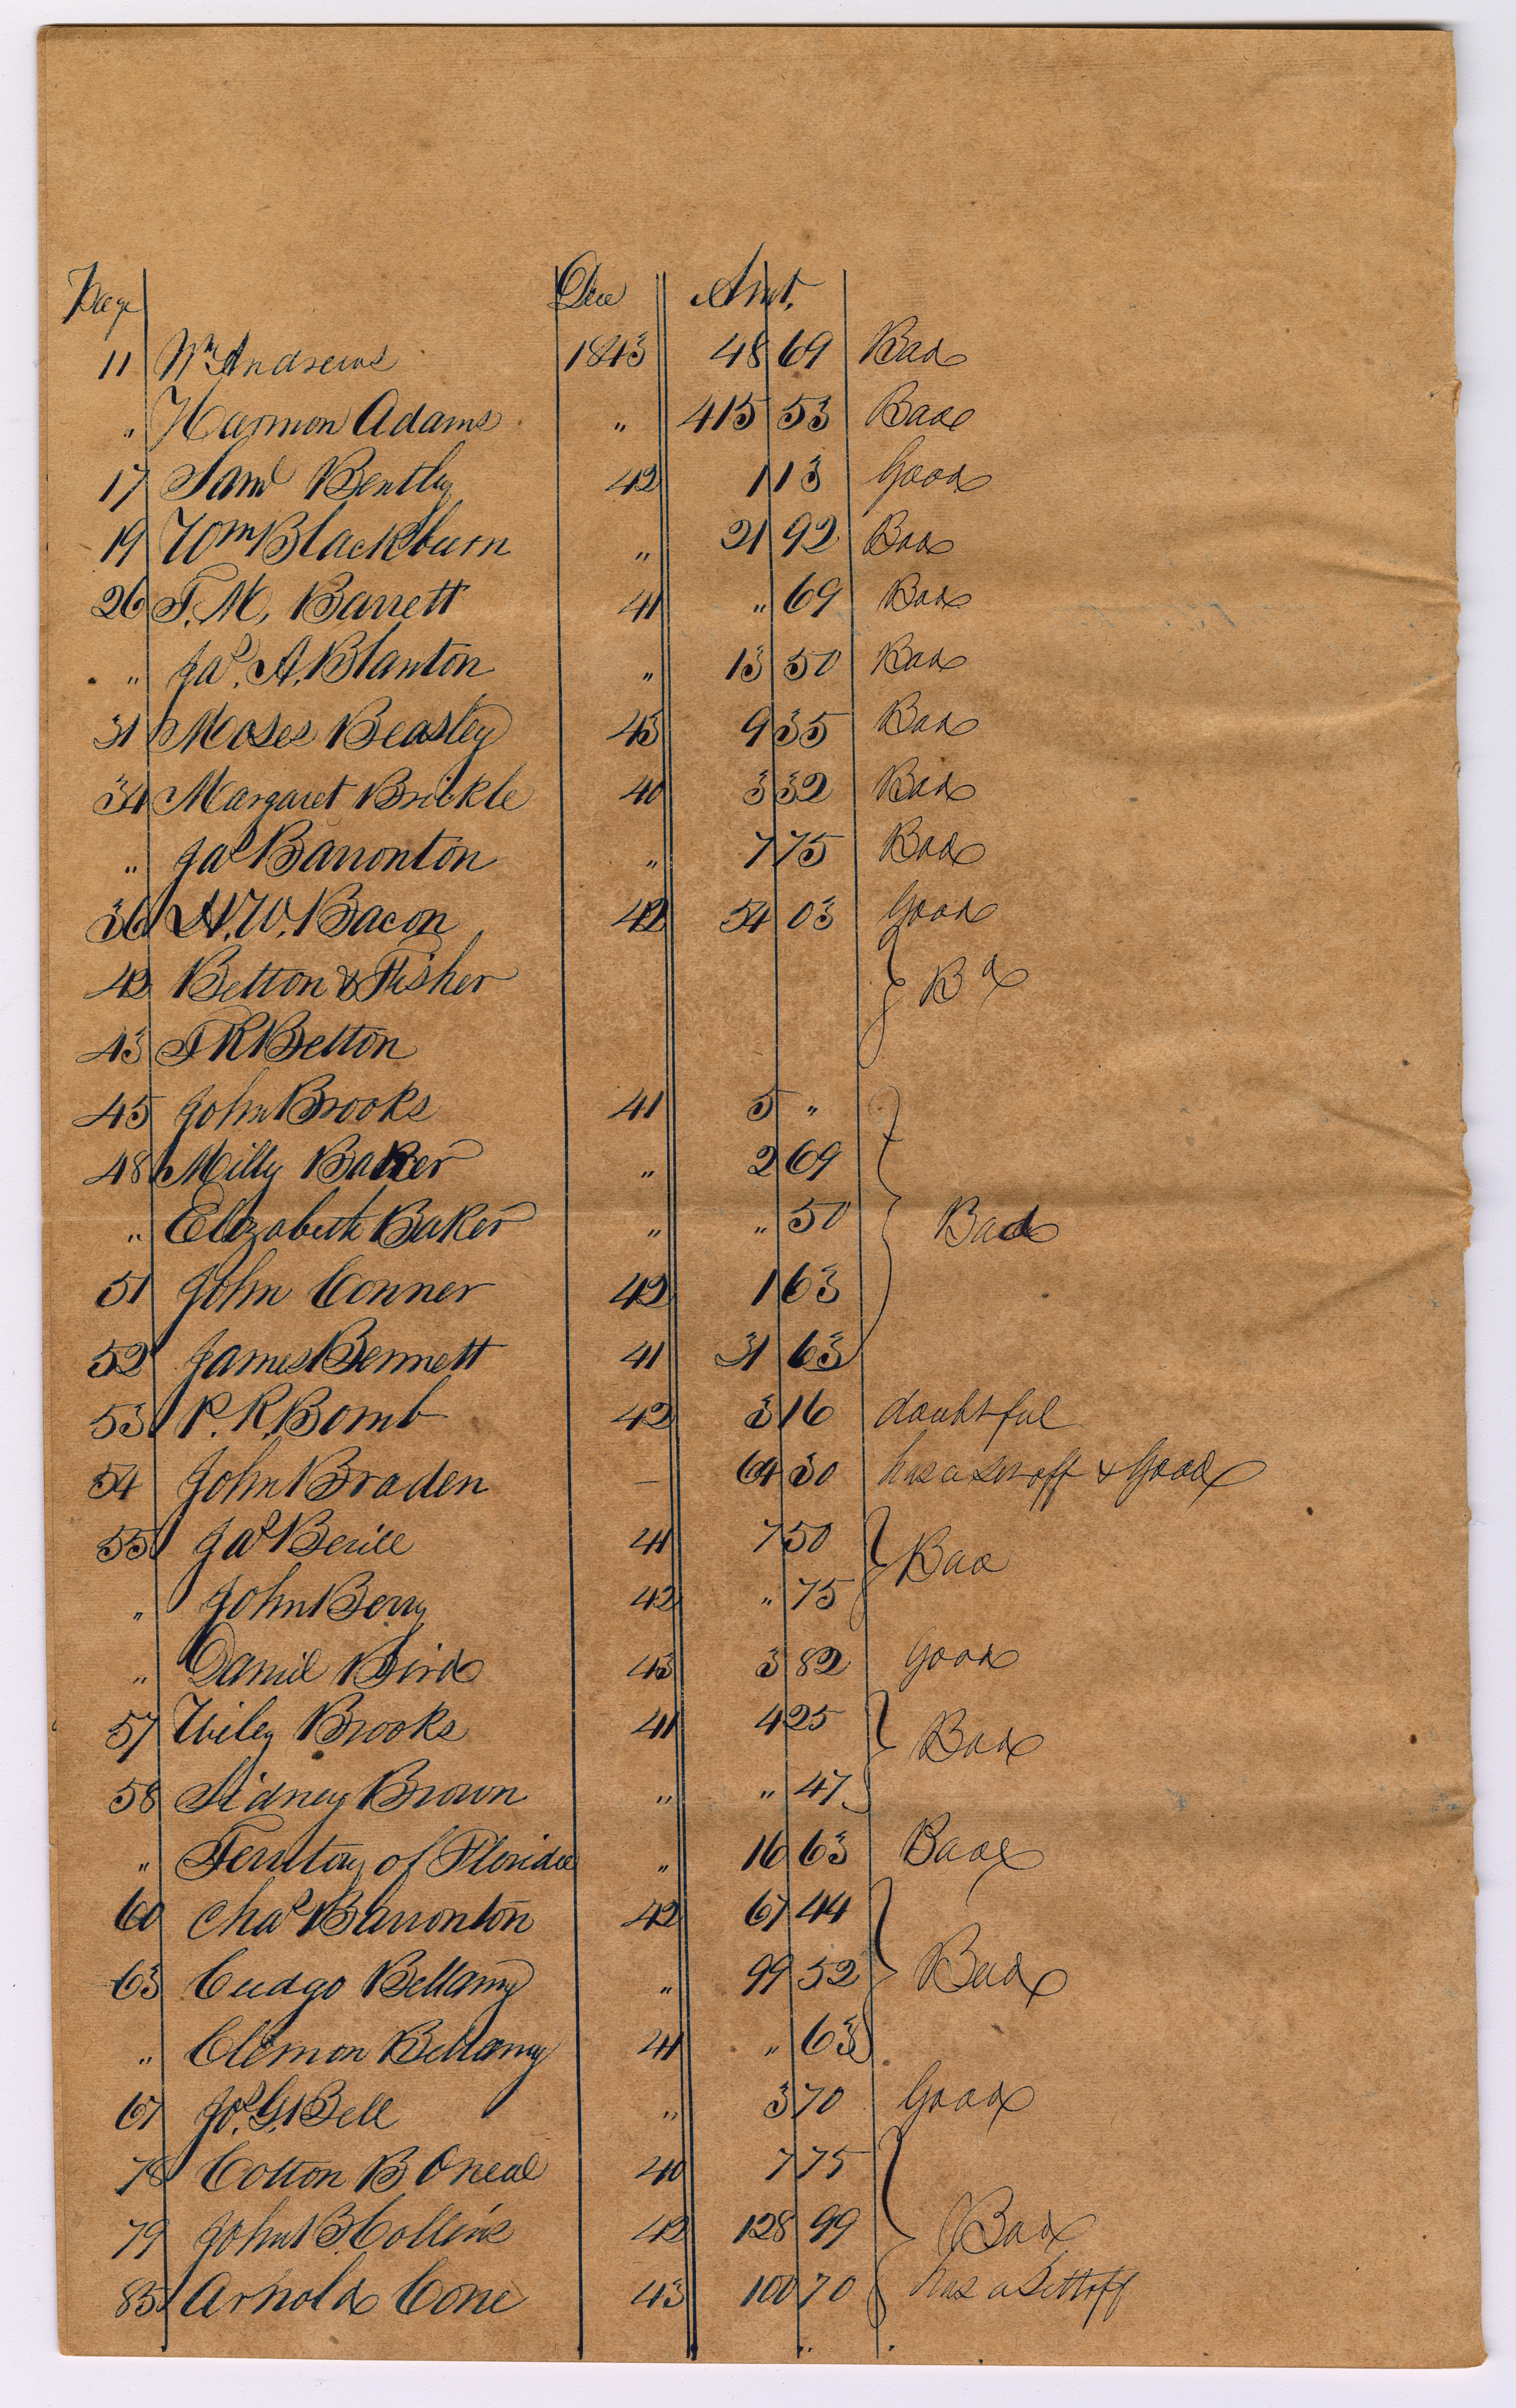 Page Due Amt.
11 Wm Andrews 1843 48 69 Bad
" Harmon Adams " 415 53 Bad
17 Saml Bently 42 1 13 Good
19 Wm Blackburn " 21 92 Bad
26 T. M. Barrett 41 " 69 Bad
" Jas. A. Blanton " 13 50 Bad
31 Moses Beasley 43 9 35 Bad
34 Margaret Brickle 40 3 32 Bad
" Jas Barronton " 7 75 Bad
36 H. W. Bacon 42 54 03 Good
42 Betton & Fisher Bd
43 T R Betton
45 John Brooks 41 5 "
48 Milly Baker " 2 69
" Elizabeth Baker " " 50 Bad
51 John Conner 42 1 63
52 James Bennett 41 31 63
53 P. R. Bomb 42 3 16 doubtful
54 John Braden — 64 30 has a set off & Good
55 Jas Berill 41 7 50 Bad
" John Berry 42 " 75
" Daniel Bird 43 3 82 Good
57 Wiley Brooks 41 4 25 Bad
58 Sidney Brown " " 47
" Territory of Florida " 16 63 Bad
60 Chas Barronton 42 67 44
63 Cudgo Bellamy " 99 52 Bad
" Clemon Bellamy 41 " 63
67 Jos. G. Bell " 3 70 Good
78 Cotton B Oneal 40 7 75
79 John B. Collins 42 128 99 Bad
85 Arnold Cone 43 100 70 has a Settoff